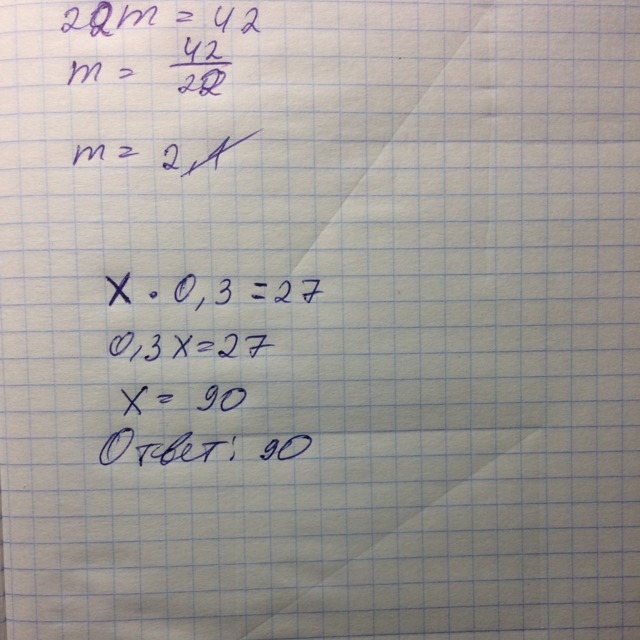 m = 42
m = 42
m = 2
x · 0,3 = 27
0,3x = 27
x = 90
Ответ: 90